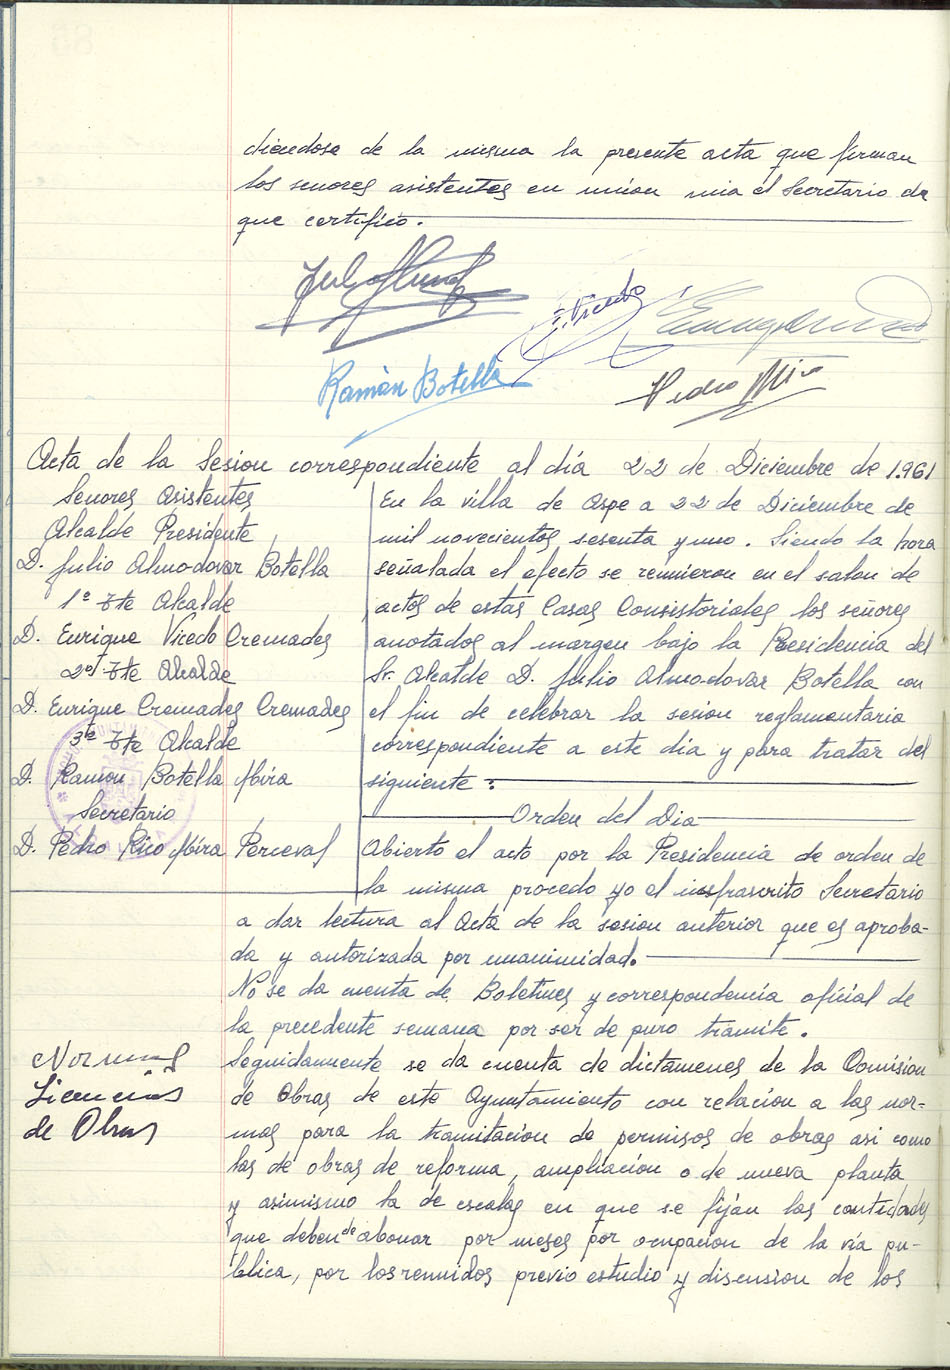 diendose de la misma la presente acta que firman
los senores asistentes en union mia el Secretario de
que certifico.
E. Vicedo
Ramón Botella
Pedro
Acta de la Sesion correspondiente al día 22 de Diciembre de 1.961
Senores Asistentes
Alcalde Presidente
D. Julio Almodovar Botella
1º Tte Alcalde
D. Enrique Vicedo Cremades
2º Tte Alcalde
D. Enrique Cremades Cremades
3º Tte Alcalde
D. Ramon Botella Mira
Secretario
D. Pedro Rico Mira Perceval
En la villa de Aspe a 22 de Diciembre de
mil novecientos sesenta y uno. Siendo la hora
señalada el efecto se reunieron en el salon de
actos de estas Casas Consistoriales los señores
anotados al margen bajo la Presidencia del
Sr. Alcalde D. Julio Almodovar Botella con
el fin de celebrar la sesion reglamentaria
correspondiente a este dia y para tratar del
siguiente:
Orden del Dia
Abierto el acto por la Presidencia de orden de
la misma procedo yo el infrascrito Secretario
a dar lectura al Acta de la sesion anterior que es aproba-
da y autorizada por unanimidad.
No se da cuenta de Boletines y correspondencia oficial de
la precedente semana por ser de puro tramite.
Normas
Licencias
de Obras
Seguidamente se da cuenta de dictamenes de la Comision
de Obras de este Ayuntamiento con relacion a las nor-
mas para la tramitacion de permisos de obras asi como
las de obras de reforma, ampliacion o de nueva planta
y asimismo la de escalas en que se fijan las cantidades
que deben de abonar por meses por ocupacion de la vía pu-
blica, por los reunidos previo estudio y discusion de los